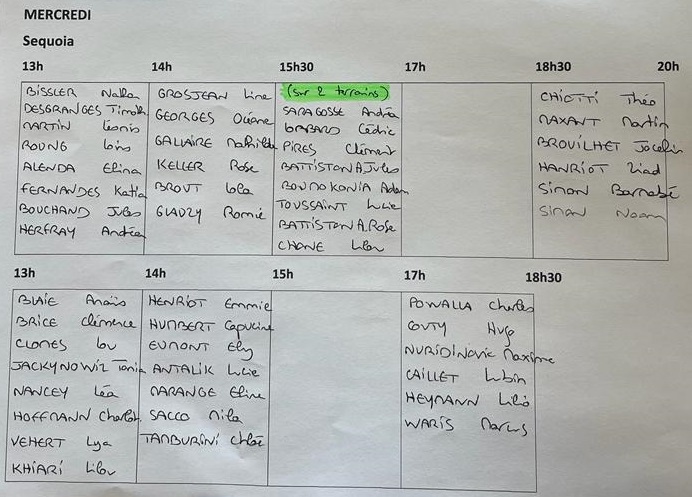 MERCREDI
Sequoia
13h 14h 15h30 17h 18h30 20h
BISSLER
DESGRANGES Timoth
MARTIN Léonis
ROUNG
ALENDA Elina
FERNANDES Katia
BOUCHAND Jules
HERFRAY Andréa
GROSJEAN Line
GEORGES Océane
GALLAIRE Mathilde
KELLER Rose
BROUT Lola
Romie
(sur 2 terrains)
SARAGOSSE Andréa
Cédric
PIRES Clément
BATTISTON A Jules
Adam
TOUSSAINT Lucie
BATTISTON A. Rose
CHONE Lilou
CHIOTTI Théo
MAXANT Martin
BROUILHET Jocelin
HANRIOT Ziad
SIMON Barnabé
SIMON Noam
13h 14h 15h 17h 18h30
BLAIE Anaïs
BRICE Clémence
CLONES Lou
JACKYNOWIZ Tania
NANCEY Léa
HOFFMANN Charlot
VEHERT Lya
KHIARI Lilou
HENRIOT Emmie
HUMBERT Capucine
EUMONT Ely
ANTALIK Lucie
MARANGE Eline
SACCO Mila
TAMBURINI Chloé
POWALLA Charles
COUTY Hugo
NURIDINOVIC Maxime
CAILLET Lubin
HEYMANN Lilio
WARIS Marcus